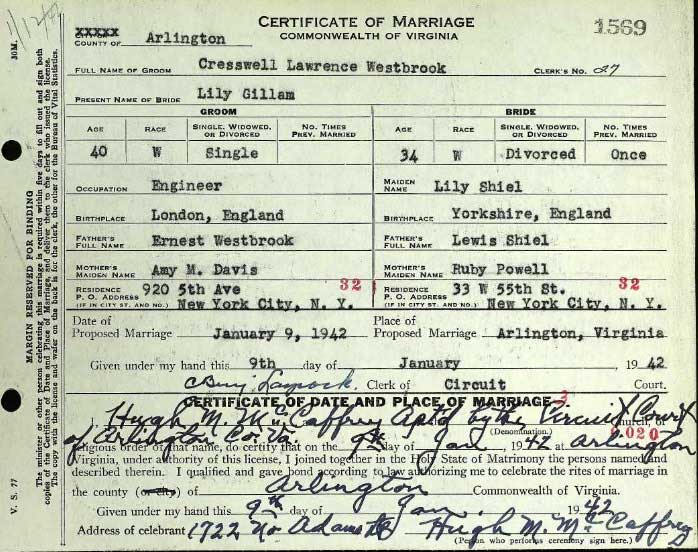 11242
CERTIFICATE OF MARRIAGE
COMMONWEALTH OF VIRGINIA
1569
XXXXX
COUNTY OF Arlington
FULL NAME OF GROOM Cresswell Lawrence Westbrook CLERK'S NO. 27
PRESENT NAME OF BRIDE Lily Gillam
GROOM BRIDE
AGE RACE SINGLE, WIDOWED, OR DIVORCED NO. TIMES PREV. MARRIED AGE RACE SINGLE, WIDOWED, OR DIVORCED NO. TIMES PREV. MARRIED
40 W Single 34 W Divorced Once
OCCUPATION Engineer MAIDEN NAME Lily Shiel
BIRTHPLACE London, England BIRTHPLACE Yorkshire, England
FATHER'S FULL NAME Ernest Westbrook FATHER'S FULL NAME Lewis Shiel
MOTHER'S MAIDEN NAME Amy M. Davis MOTHER'S MAIDEN NAME Ruby Powell
RESIDENCE 920 5th Ave 32 RESIDENCE 33 W 55th St. 32
P. O. ADDRESS (IF IN CITY ST. AND NO.) New York City, N. Y. P. O. ADDRESS (IF IN CITY, ST. AND NO.) New York City, N. Y.
Date of Proposed Marriage January 9, 1942 Place of Proposed Marriage Arlington, Virginia
Given under my hand this 9th day of January 1942
Clerk of Circuit Court.
CERTIFICATE OF DATE AND PLACE OF MARRIAGE
I, Hugh M. McCaffrey Aptd by the Circuit Court Church, or
(Denomination.) 020
of Arlington Co. Va.
religious order of that name, do certify that on the 9th day of Jan, 1942 at Arlington
Virginia, under authority of this license, I joined together in the Holy State of Matrimony the persons named and
described therein. I qualified and gave bond according to law authorizing me to celebrate the rites of marriage in
the county (or city) of Arlington Commonwealth of Virginia.
Given under my hand this 9th day of Jan, 1942
Address of celebrant 1722 No Adams St Hugh M. McCaffrey
(Person who performs ceremony sign here.)
V. S. 77 30M.
MARGIN RESERVED FOR BINDING
The minister or other person celebrating this marriage is required within five days to fill out and sign both
copies of the Certificate of Date and Place of Marriage, and deliver them to the clerk who issued the license.
The copy with the license and wafer on the back is for the clerk, the other for the Bureau of Vital Statistics.